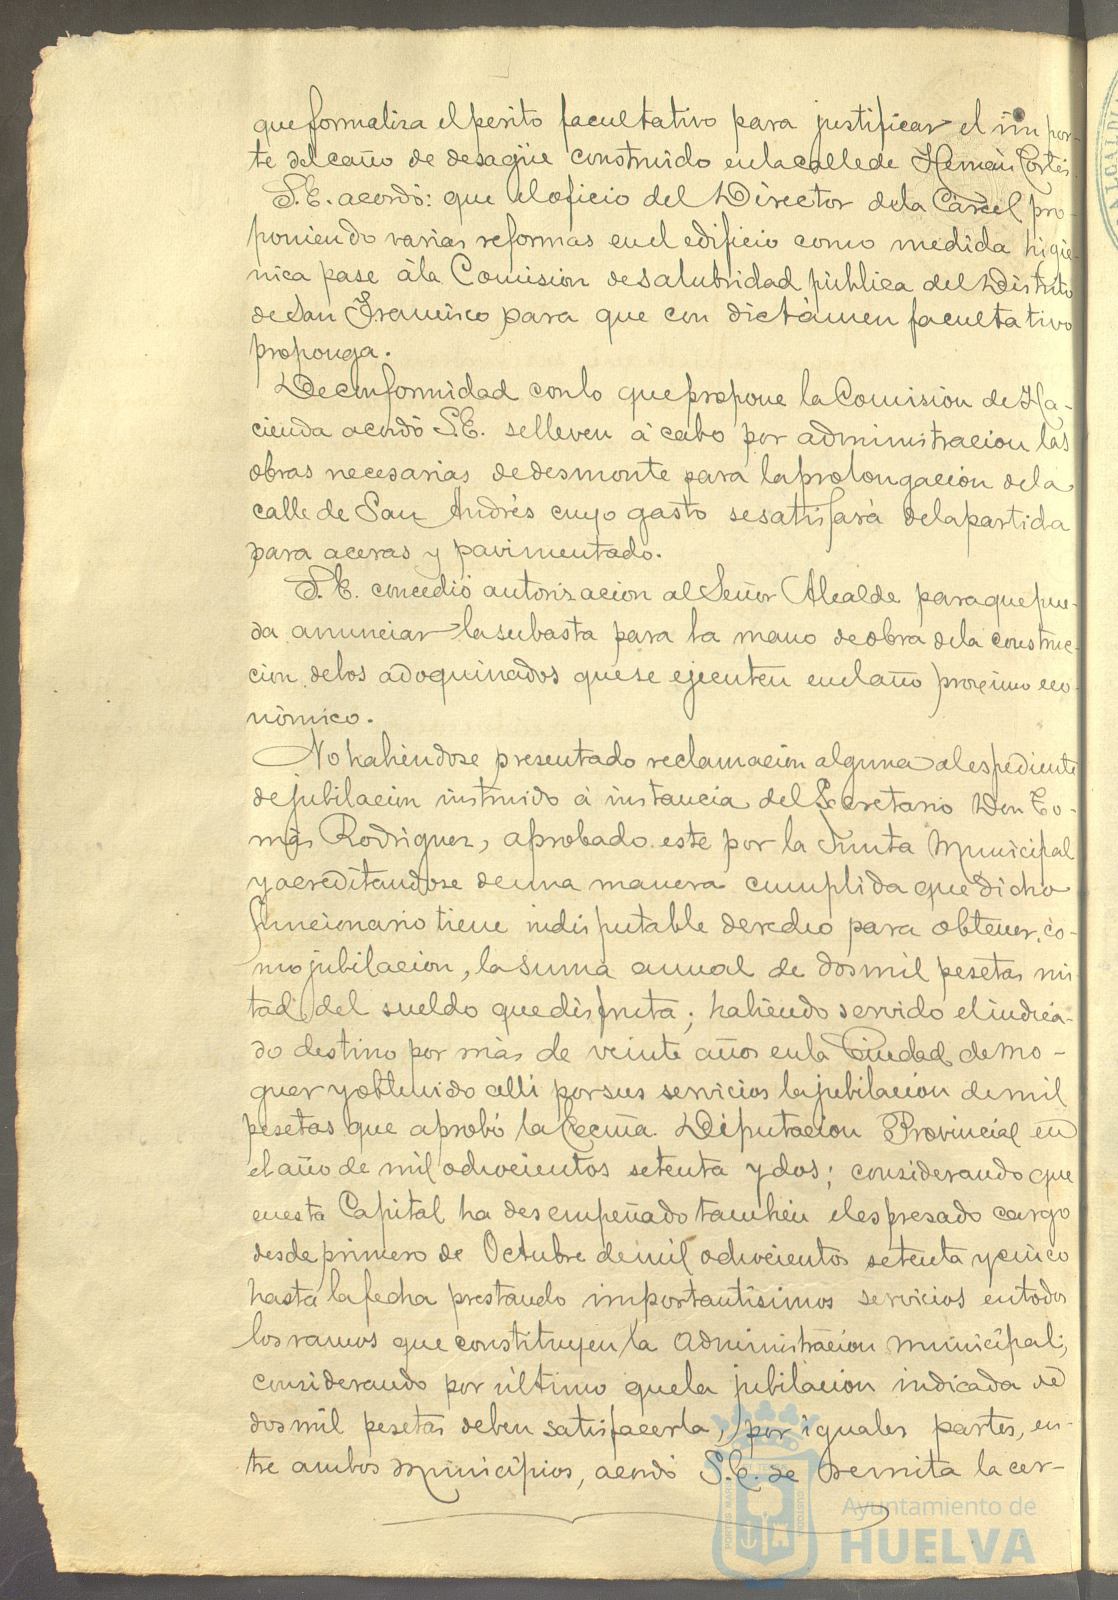 que formaliza el perito facultativo para justificar el impor-
te del caño de desagüe construido en la calle de Hernán Cortés.
S.E. acordó: que el oficio del Director de la Cárcel pro-
poniendo varias reformas en el edificio como medida higie-
nica pase á la Comision de salubridad pública del Distrito
de San Francisco para que con dictámen facultativo
proponga.
De conformidad con lo que propone la Comisión de Ha-
cienda acordó S.E. se lleven á cabo por administracion las
obras necesarias de desmonte para la prolongación de la
calle de San Andrés cuyo gasto se satisfará de la partida
para aceras y pavimentado.
S.E. concedió autorizacion al Señor Alcalde para que pue-
da anunciar la subasta para la mano de obra de la construc-
cion de los adoquinados que se ejecuten en el año proximo eco-
nómico.
No habiéndose presentado reclamación alguna al espediente
de jubilación instruido á instancia del Secretario Don To-
más Rodriguez, aprobado este por la Junta Municipal
y acreditandose de una manera cumplida que dicho
funcionario tiene indisputable derecho para obtener, co-
mo jubilacion, la suma anual de dos mil pesetas mi-
tad del sueldo que disfruta; habiendo servido el indica-
do destino por más de veinte años en la Ciudad de Mo-
guer y obtenido alli por sus servicios la jubilación de mil
pesetas que aprobó la Excma. Diputacion Provincial en
el año de mil ochocientos setenta y dos; considerando que
en esta Capital ha desempeñado tambien el espresado cargo
desde primero de Octubre de mil ochocientos setenta y cinco
hasta la fecha prestando importantísimos servicios en todos
los ramos que constituyen la administración municipal;
considerando por último que la jubilación indicada de
dos mil pesetas deben satisfacerla, por iguales partes, en-
tre ambos Municipios, acordó S.E. se remita la cer-
Ayuntamiento de
HUELVA